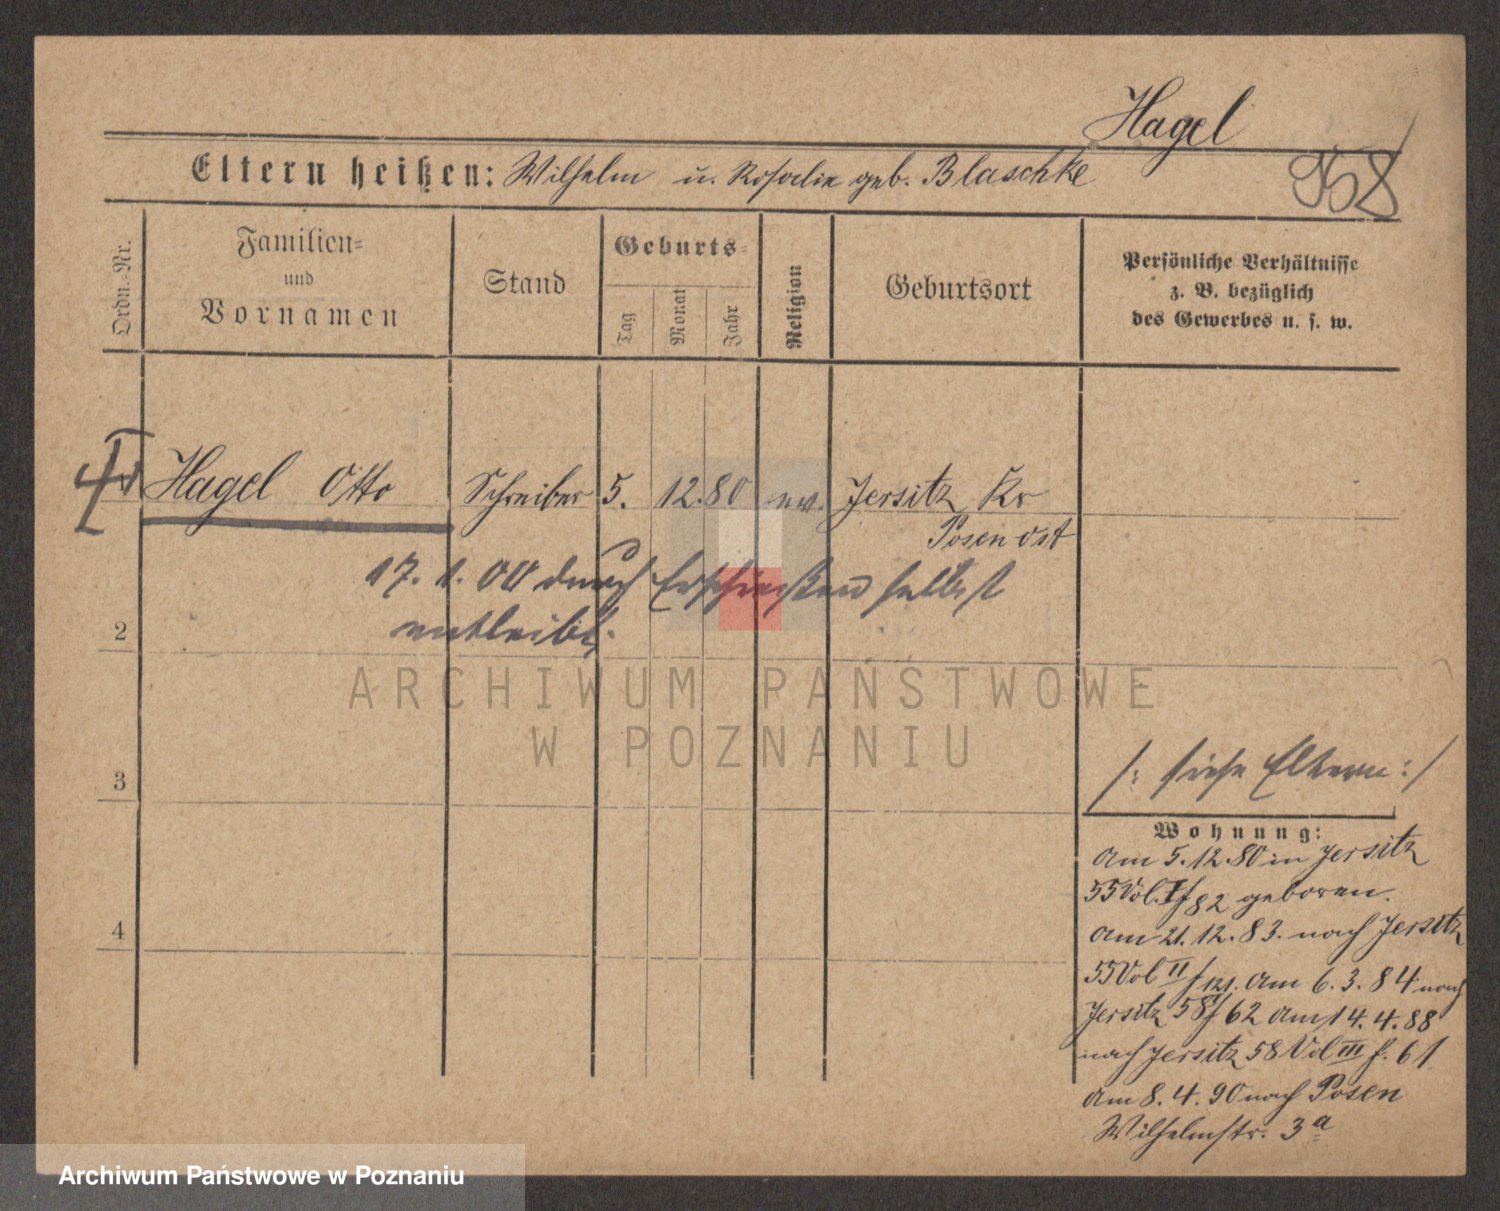 Hagel
Eltern heißen: Wilhelm u. Rosalie geb. Blaschke
Ordn.-Nr.
Familien-
und
Vornamen
Stand
Geburts-
Tag
Monat
Jahr
Religion
Geburtsort
Persönliche Verhältnisse
z. B. bezüglich
des Gewerbes u. s. w.
Hagel Otto Schreiber 5. 12. 80 ev. Jersitz Kr
Posen ost
17. 1. 00 durch Erschießen selbst
entleibt.
2
ARCHIWUM PAŃSTWOWE
W POZNANIU
3
/: siehe Eltern :/
Wohnung:
am 5. 12. 80 in Jersitz
55 Vol. I f 82 geboren.
am 21. 12. 83. nach Jersitz
4
55 Vol II f 121. am 6. 3. 84 nach
Jersitz 58 f 62 am 14. 4. 88
nach Jersitz 58 Vol III f. 61
am 8. 4. 90 nach Posen
Wilhelmstr. 3a
Archiwum Państwowe w Poznaniu